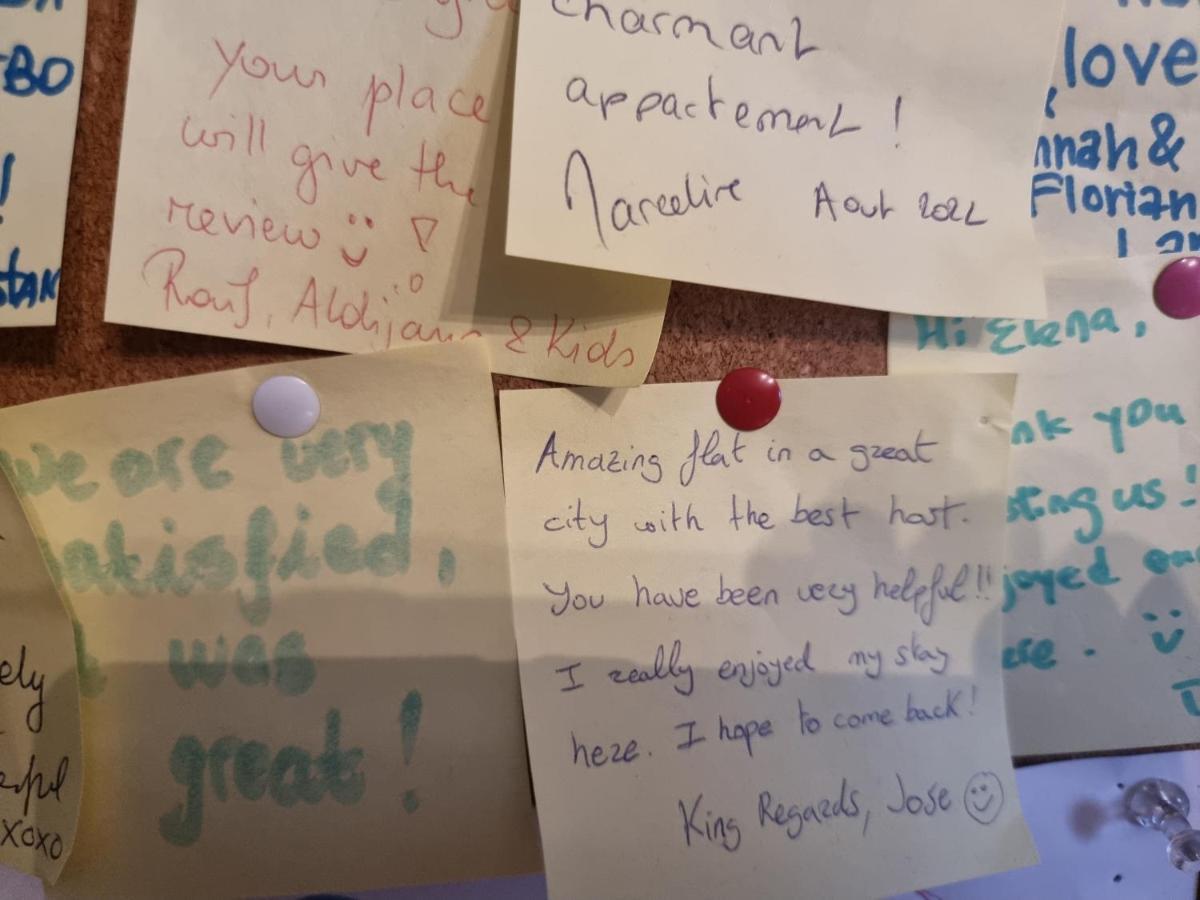 BO
!
your place
will give the
review
Rauf, Aldijana & Kids
charmant
appartement !
Marceline Aout 2022
love
nnah &
Florian
Hi Elena,
nk you
sting us!
joyed our
ere.
we are very
satisfied,
it was
great!
ely
xoxo
Amazing flat in a great
city with the best host.
You have been very helpful!!
I really enjoyed my stay
here. I hope to come back!
King Regards, Jose